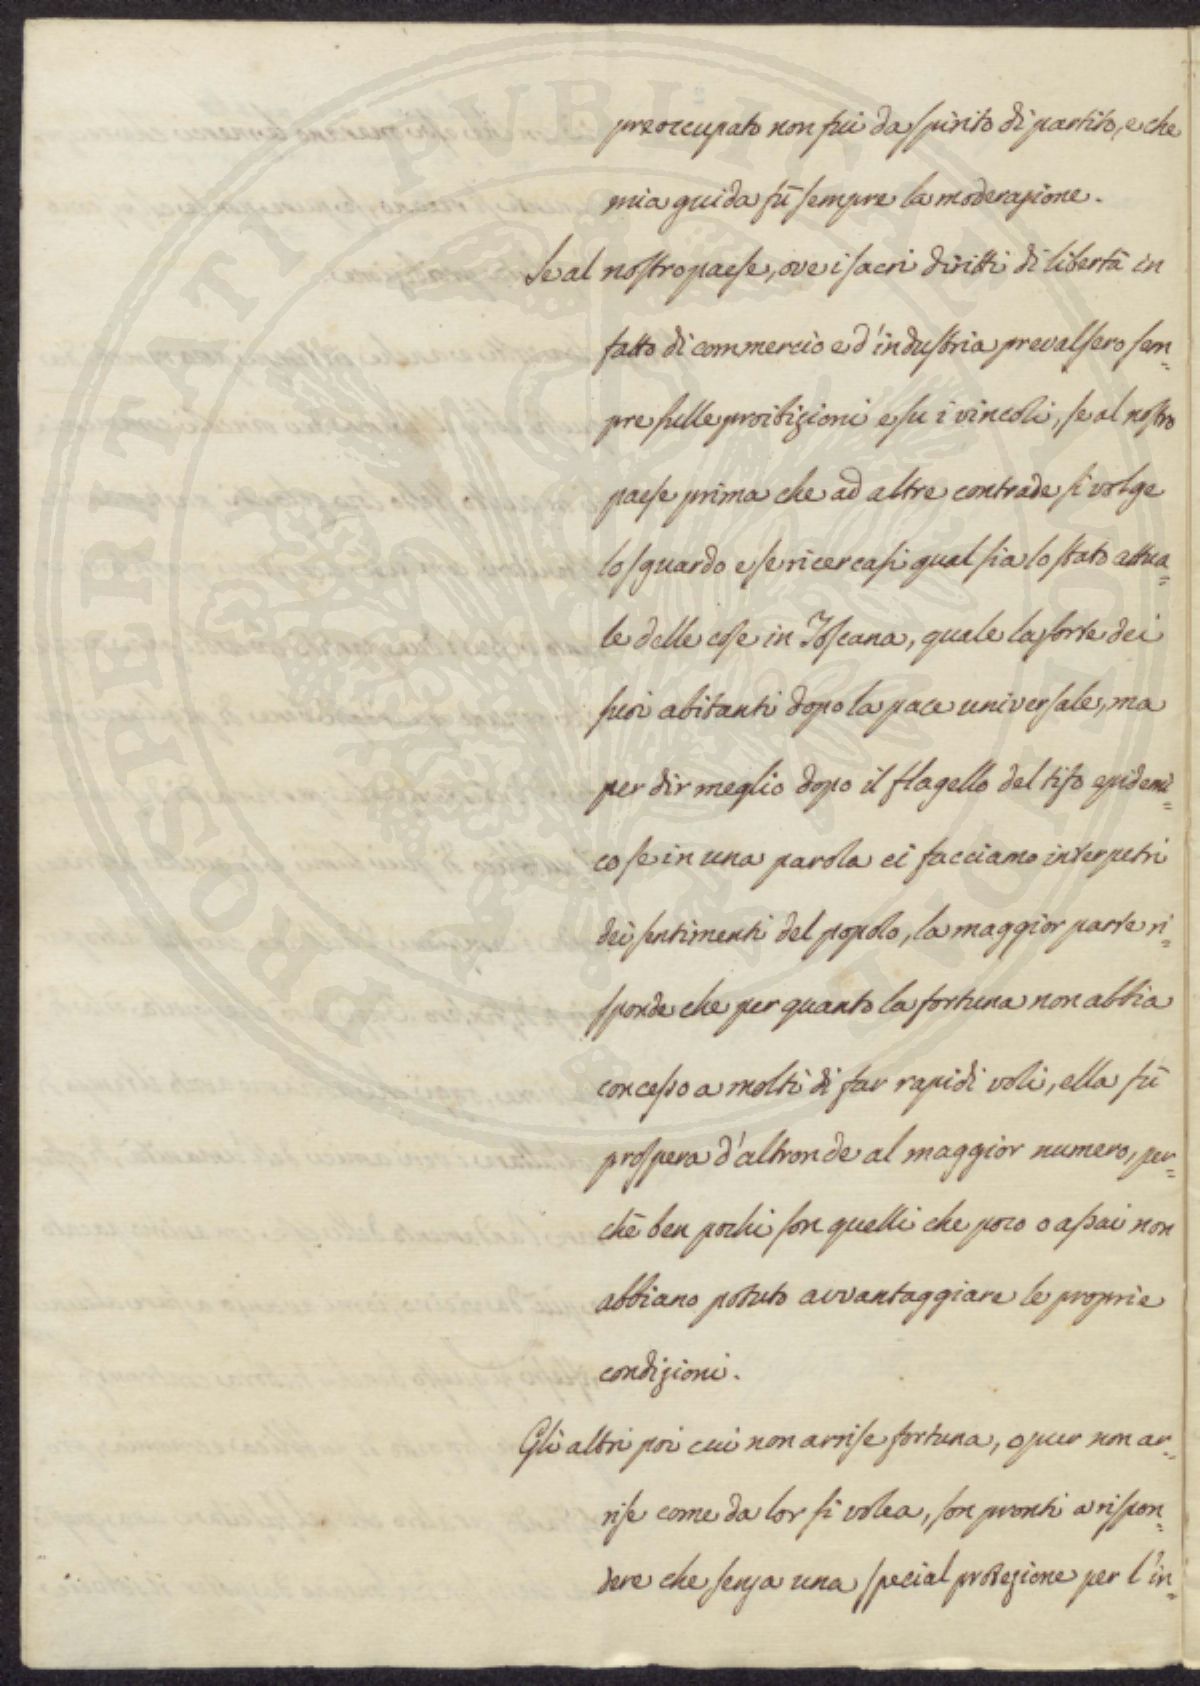 preoccupato non fui da spirito di partito, e che
mia guida fù sempre la moderazione.
Se al nostro paese, ove i sacri diritti di libertà in
fatto di commercio e d'industria prevalsero sem=
pre sulle proibizioni e su i vincoli, se al nostro
paese prima che ad altre contrade si volge
lo sguardo e se ricercasi qual sia lo stato attua=
le delle cose in Toscana, quale la sorte dei
suoi abitanti dopo la pace universale, ma
per dir meglio dopo il flagello del tifo epidemi=
co se in una parola ci facciamo interpetri
dei sentimenti del popolo, la maggior parte ri=
sponde che per quanto la fortuna non abbia
concesso a molti di far rapidi voli, ella fù
prospera d'altronde al maggior numero, per=
chè ben pochi son quelli che poco o assai non
abbiano potuto avvantaggiare le proprie
condizioni.
Gli altri poi cui non arrise fortuna, o pur non ar=
rise come da lor si volea, son pronti a rispon=
dere che senza una special protezione per l'in=
PROSPERITATI PVBLICAE